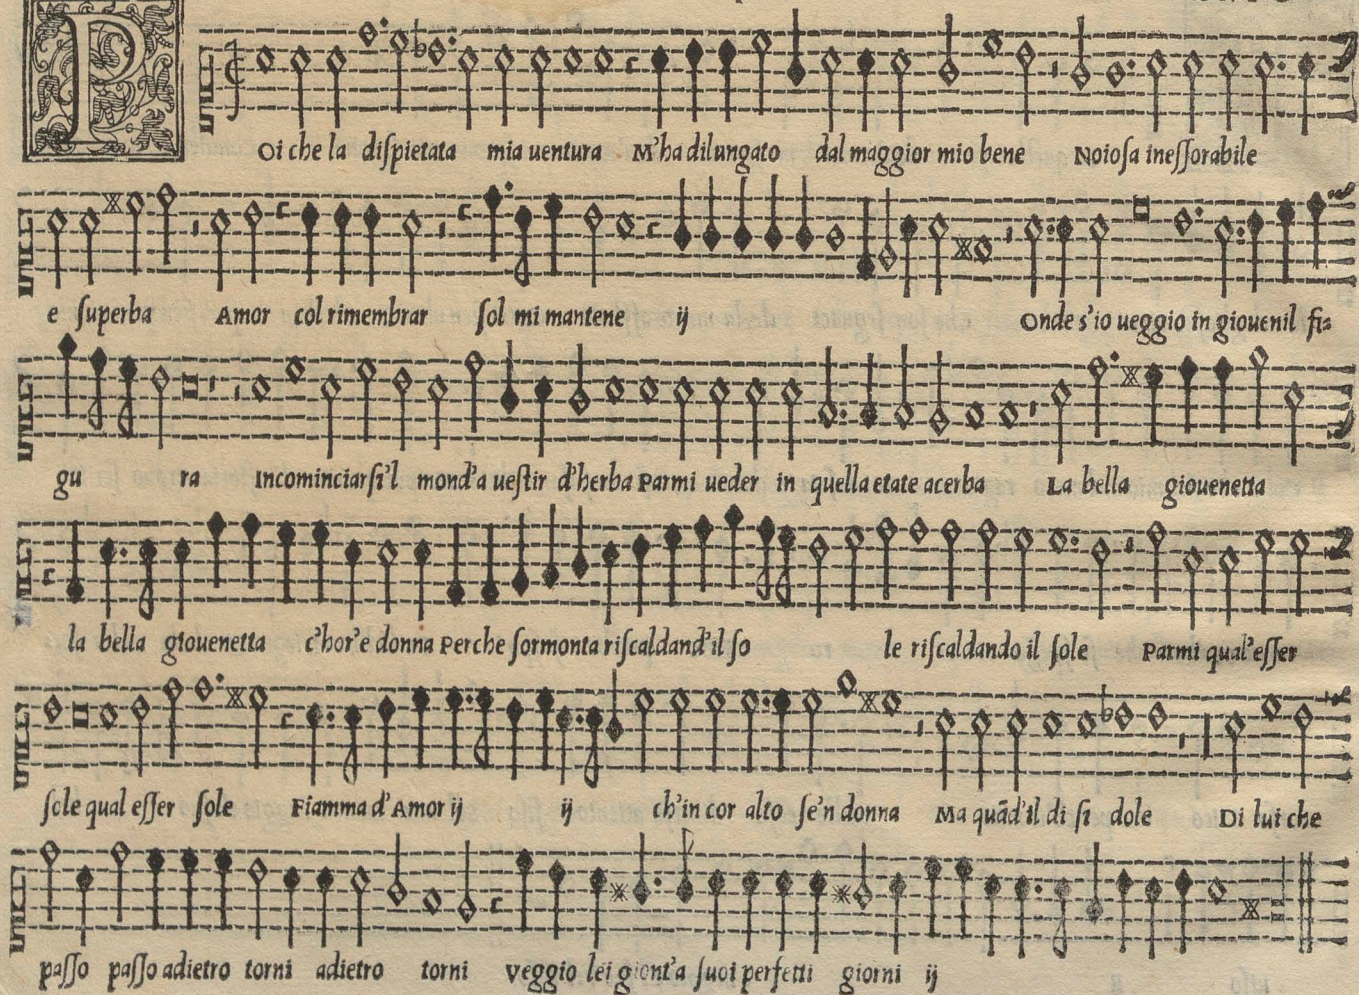 POi che la diſpietata mia uentura M'ha dilungato dal maggior mio bene Noioſa ineſſorabile
e ſuperba Amor col rimembrar ſol mi mantene ij Onde s'io ueggio in giouenil fi=
gu ra Incominciarſi'l mond'a ueſtir d'herba Parmi ueder in quella etate acerba La bella giouenetta
la bella giouenetta c'hor'e donna Perche ſormonta riſcaldand'il ſo le riſcaldando il ſole Parmi qual'eſſer
ſole qual eſſer ſole Fiamma d'Amor ij ij ch'in cor alto ſe'n donna Ma quãd'il di ſi dole Di lui che
paſſo paſſo adietro torni adietro torni veggio lei giont'a ſuoi perfetti giorni ij